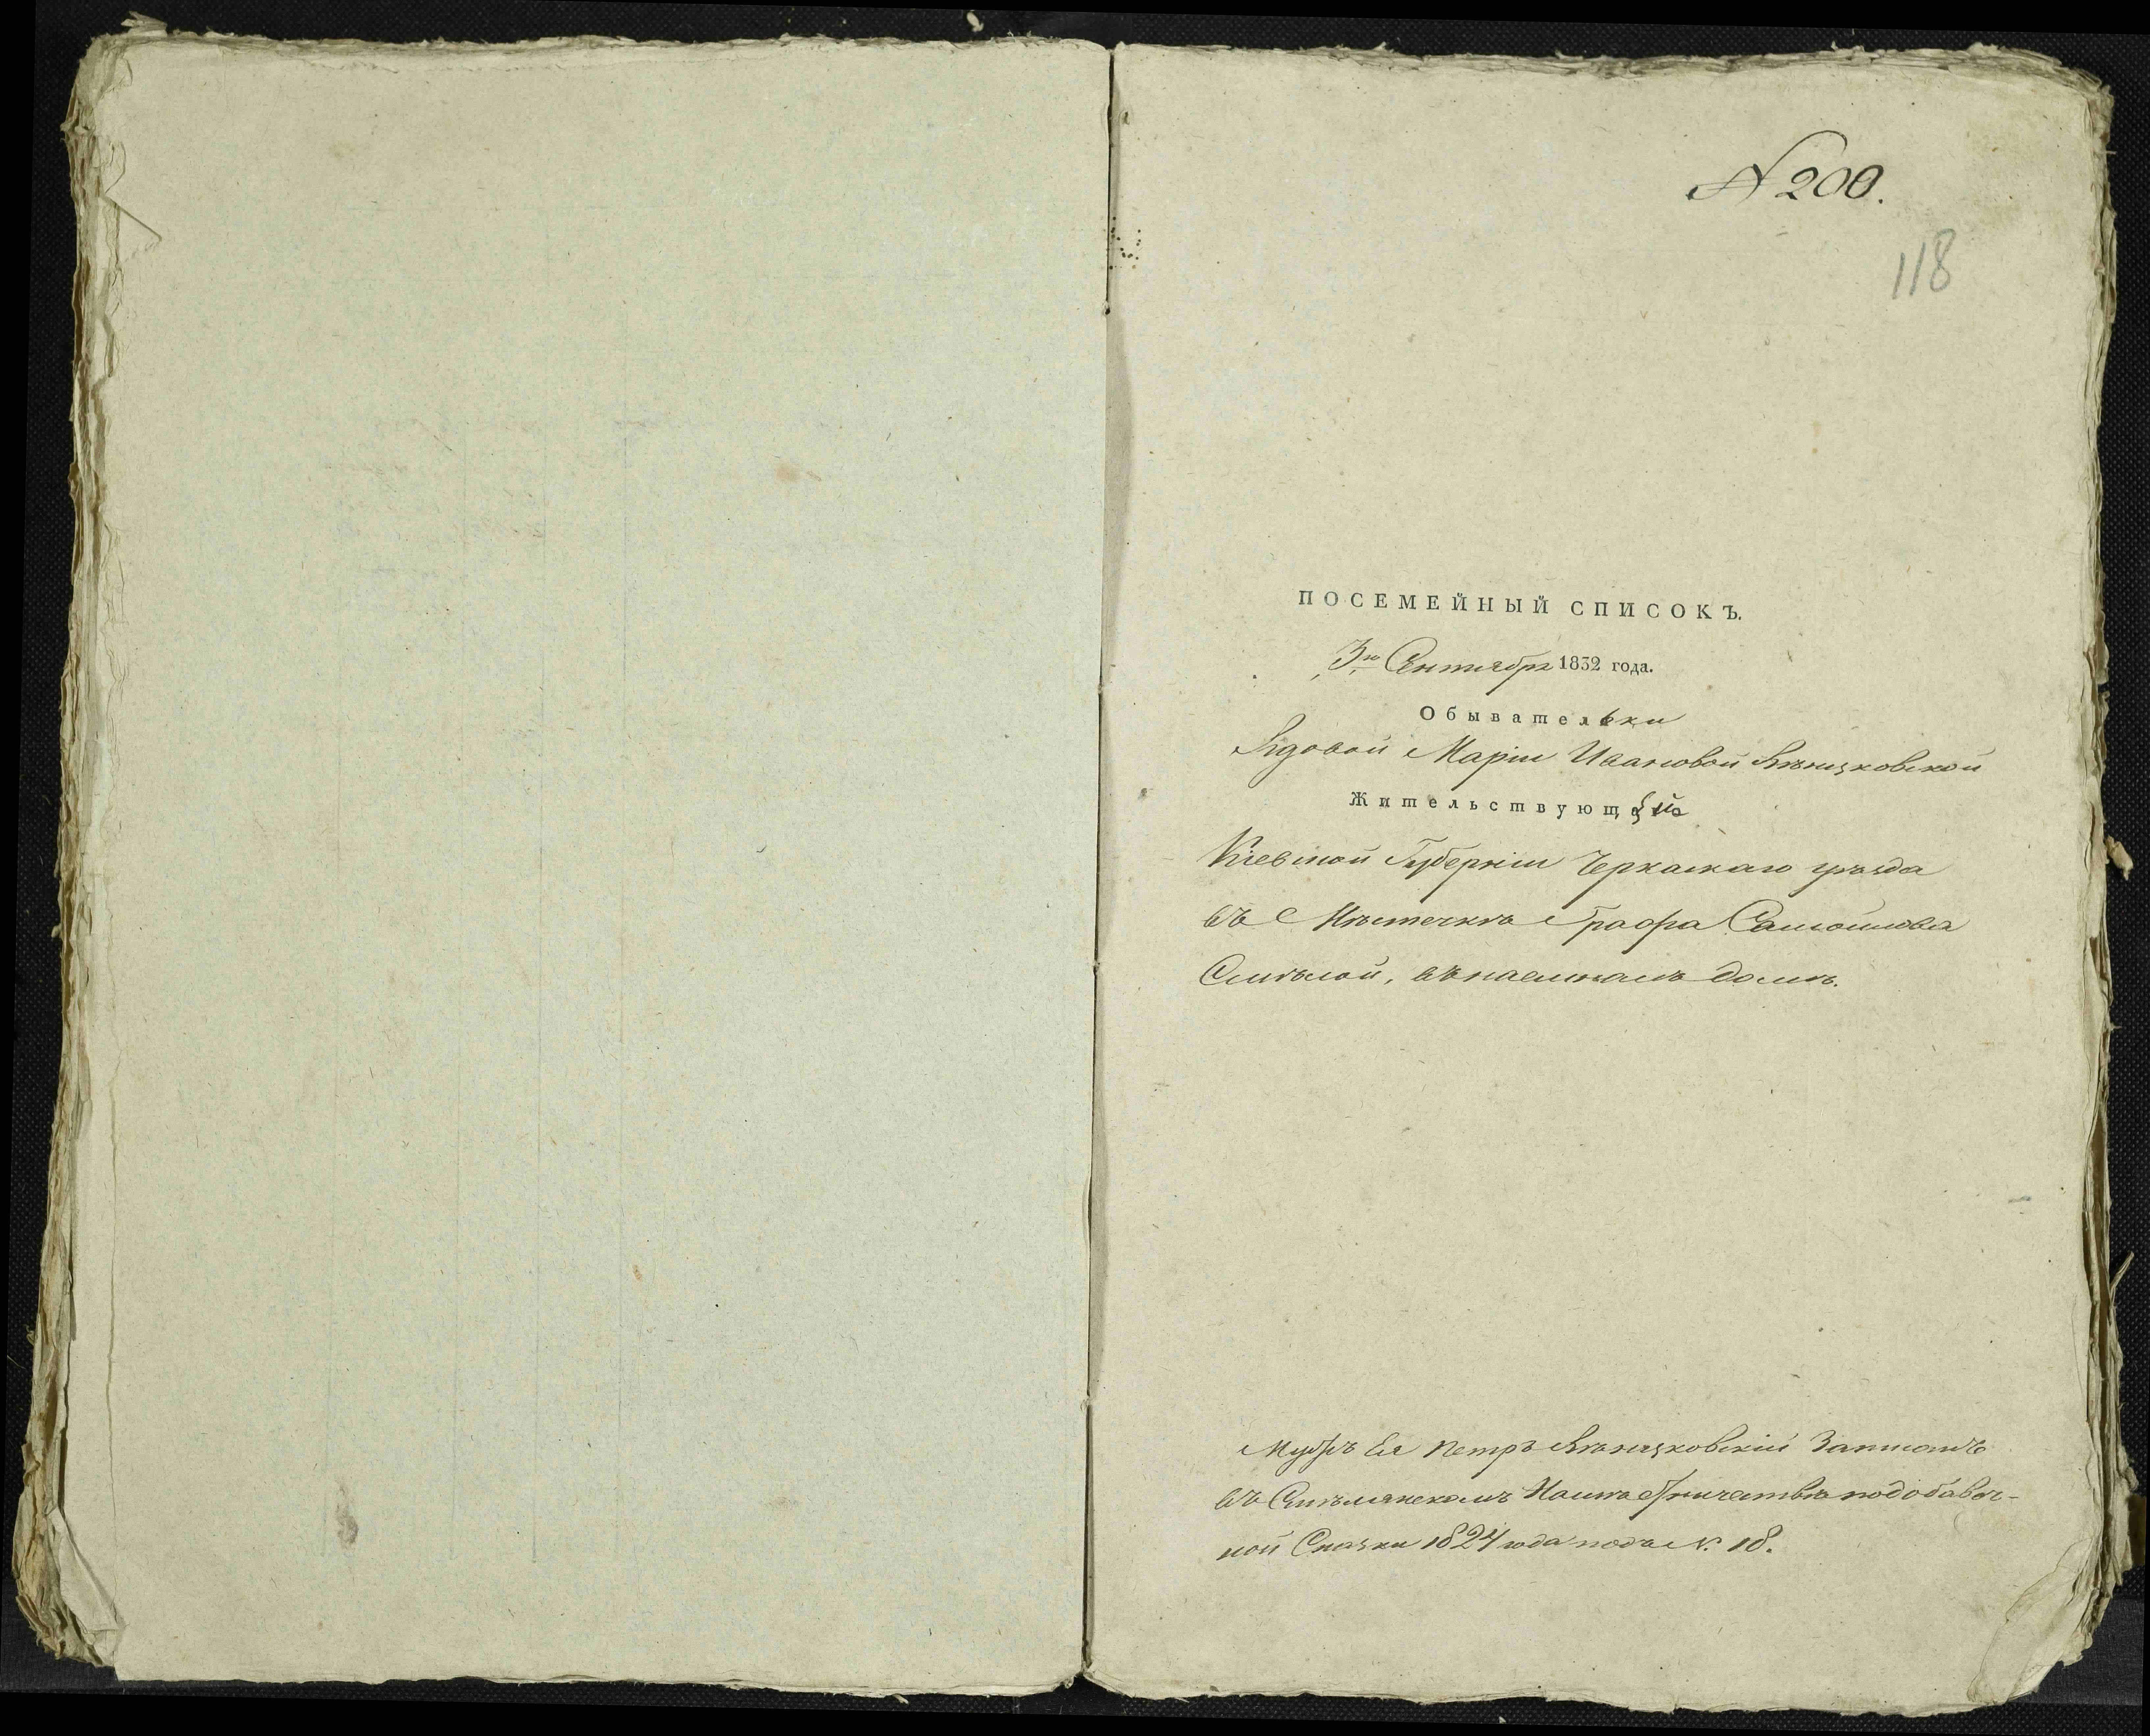 № 200.
118
ПОСЕМЕЙНЫЙ СПИСОКЪ.
3го Сентября 1832 года.
Обывательки
Вдовой Маріи Ивановой Яницковской
Жительствующей
Кіевской Губерніи Черкаскаго уѣзда
въ Мѣстечкѣ Графа Самойлова
Смѣлой, въ наемномъ домѣ.
Мужъ Ея Петръ Записанъ
въ Смѣлянскомъ подобавоч-
ной Сказки 1824 года подъ N. 18.